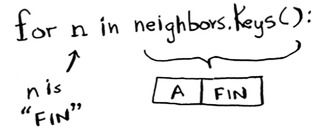 for n in neighbors.Keys():
n is
"FIN"
A FIN